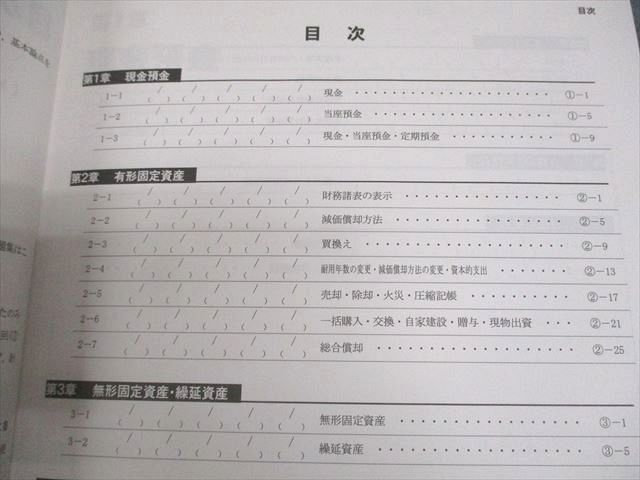 目次
目 次
基本論点を
第1章 現金預金
1-1 / / / / / ( ) ( ) ( ) ( ) ( ) 現金 ・・・・・・・・・・・・・・・・・・・・ ①-1
1-2 / / / / / ( ) ( ) ( ) ( ) ( ) 当座預金 ・・・・・・・・・・・・・・・・・・ ①-5
1-3 / / / / / ( ) ( ) ( ) ( ) ( ) 現金・当座預金・定期預金 ・・・・・・・・・・・ ①-9
第2章 有形固定資産
2-1 / / / / / ( ) ( ) ( ) ( ) ( ) 財務諸表の表示 ・・・・・・・・・・・・・・・ ②-1
2-2 / / / / / ( ) ( ) ( ) ( ) ( ) 減価償却方法 ・・・・・・・・・・・・・・・・ ②-5
2-3 / / / / / ( ) ( ) ( ) ( ) ( ) 買換え ・・・・・・・・・・・・・・・・・・・ ②-9
2-4 / / / / / ( ) ( ) ( ) ( ) ( ) 耐用年数の変更・減価償却方法の変更・資本的支出 ・・・・・・・ ②-13
2-5 / / / / / ( ) ( ) ( ) ( ) ( ) 売却・除却・火災・圧縮記帳 ・・・・・・・・・ ②-17
2-6 / / / / / ( ) ( ) ( ) ( ) ( ) 一括購入・交換・自家建設・贈与・現物出資 ・・・ ②-21
2-7 / / / / / ( ) ( ) ( ) ( ) ( ) 総合償却 ・・・・・・・・・・・・・・・・・ ②-25
第3章 無形固定資産・繰延資産
3-1 / / / / / ( ) ( ) ( ) ( ) ( ) 無形固定資産 ・・・・・・・・・・・・・・・・ ③-1
3-2 / / / / / ( ) ( ) ( ) ( ) ( ) 繰延資産 ・・・・・・・・・・・・・・・・・・ ③-5